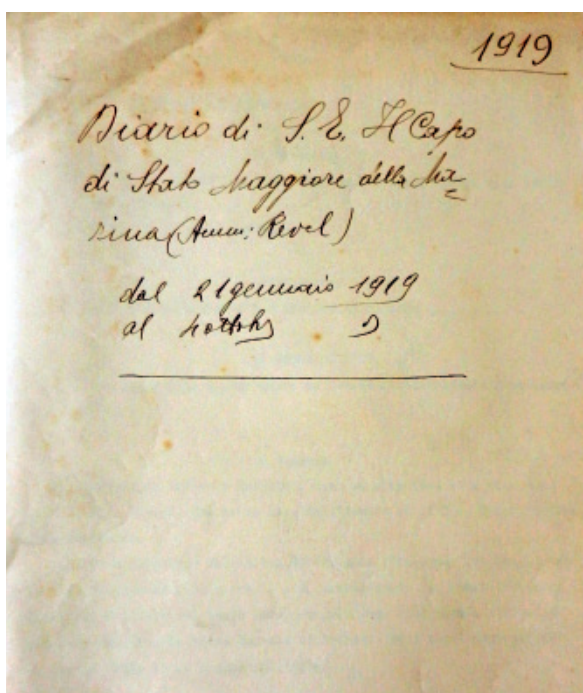 1919
Diario di S. E. Il Capo
di Stato Maggiore della Ma=
rina (Amm: Revel)
dal 21 gennaio 1919
al